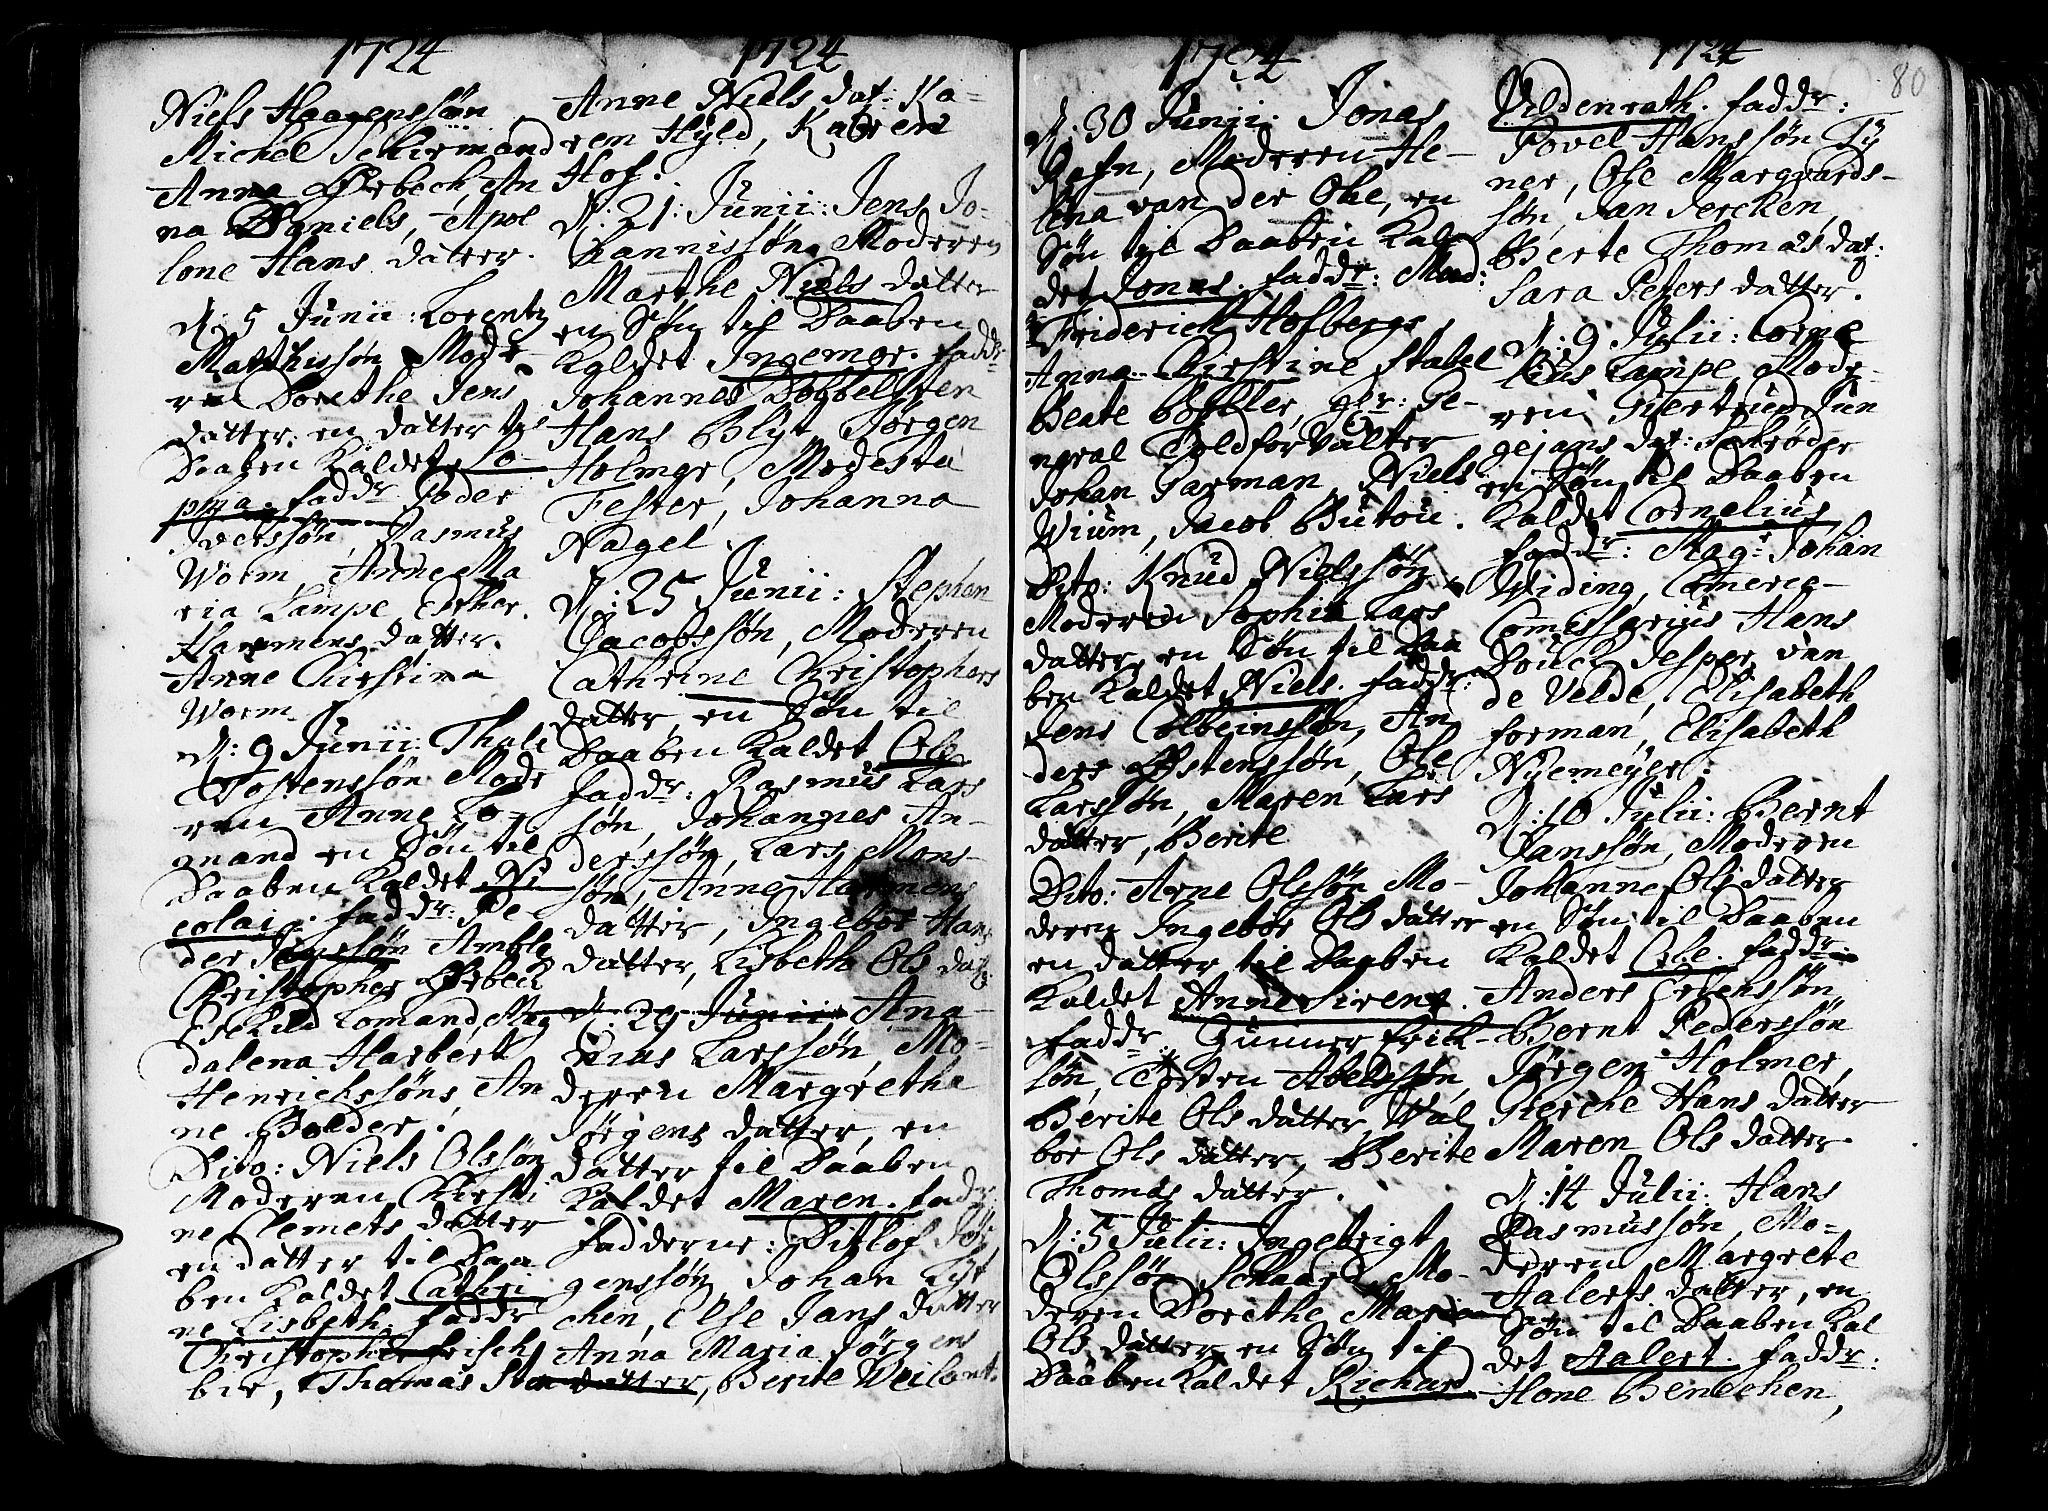 1724
Niels Haagenssøn
Michel Schiermand
Anna Ørbeck, An
na Daniels, Apol
lone Hans datter.
D: 5 Junii: Lorentz
Matthissøn Mode
ren Dorethe Jens
datter en datter til
Daaben Kaldet So
phia. faddr Peder
Iverssøn, Rasmus
Worm, Anne Ma
ria Lampe, Esther
Harmens datter.
Anne Chirstina
Worm.
D: 9 Junii: Thole
Tostenssøn Mode
ren Anne Lo-
gnand en Søn til
Daaben Kaldet Ni
colai. faddr: Pe-
der Jenssøn Amble
Christopher Ørbeck
Eschild Lomand Mag
dalena Harbert
Henrichssøns, An
ne Bolder.
Dito: Niels Olssøn
Moderen Kirsti
ne Clemets datter
en datter til Daa
ben Kaldet Cathri
ne Lisbeth. faddr
Christopher Frisch
bir, Thomas
1724
Anne Niels dat: Ka-
ren Hyld, Karen
Hof.
D: 21: Junii: Jens Jo-
hannissøn, Moderen
Marthe Niels datter
en Søn til Daaben
Kaldet Ingemor. faddr
Johannes Dobbelsten
Hans Blyt, Jørgen
Holmer, Modesta
Fester, Johanna
Nagel.
D: 25 Junii: Stephen
Jacobssøn, Moderen
Cathrine Christophers
datter, en Søn til
Daaben Kaldet Ole
faddr: Rasmus Lars
søn, Johannes An-
derssøn, Lars Mons-
søn, Anne Harmens
datter, Ingebor Hans
datter, Lisbeth Ols dat:
D: 29 Junii: Ana-
nias Larssøn, Mo-
deren Margretha
Jørgens datter, en
datter til Daaben
Kaldet Maren. fadr
Fadderne: Ditlof Jør
genssøn, Johan Kyt
chen, Else Jans datter
Anna Maria Jørgens
datter, Berite Weilant.
1724
D: 30 Junii: Jonas
Rafn, Moderen He-
lena van der Ohe, en
Søn til Daaben Kal
det Jonas. faddr: Mad:
Friderich Hofbergs,
Anna Kirstine Stabel
Beate Bøffler, hr: Ge-
neral Toldforvalter
Johan Garman, Niels
Wium, Jacob Butou.
Dito: Knud Nielssøn,
Moderen Sophia Lars
datter, en Søn til Daa
ben Kaldet Niels. faddr:
Jens Colbeinssøn, An
ders Østenssøn, Ole
Larssøn, Maren Lars
datter, Berite
Dito: Arne Olssøn Mo-
deren Ingebor Ols datter
en datter til Daaben
Kaldet Anne Sirene.
faddr. Gunner Erick-
søn, Torsten Abelssøn,
Berite Ols datter, Wal
bor Ols datter, Berite
Thomas datter.
D: 5 Julii: Ingebrigt
Olssøn Schaard, Mo-
deren Dorethe Maria
Ols datter, en Søn til
Daaben Kaldet Richard
1724
80
Uldenrath. faddr:
Povel Hanssøn Ty
ner, Ole Marqvards-
søn, Jan Jercken,
Berte Thomas dat:
Sara Peters datter.
D: 9 Julii: Corne
lius Lampe, Mode-
ren Giertrud Jun
gejans dat: Schrøder
en Søn til Daaben
Kaldet Cornelius.
faddr: Magr Johan
Widing, Cameree-
Comissarius Hans
Bouch, Jesper van
de Velde, Elisabeth
Forman, Elisabeth
Nyemeyer.
D: 10 Julii: Bernt
Janssøn, Moderen
Johanne Ols datter
en Søn til Daaben
Kaldet Ole. faddr:
Anders Erichssøn
Bernt Pederssøn
Jørgen Holmer,
Gierche Hans datter
Maren Ols datter.
D: 14 Julii: Hans
Rasmussøn, Mo-
deren Margrete
Aalerts datter, en
Søn til Daaben Kal
det Aalert. faddr:
Hone Benechen,